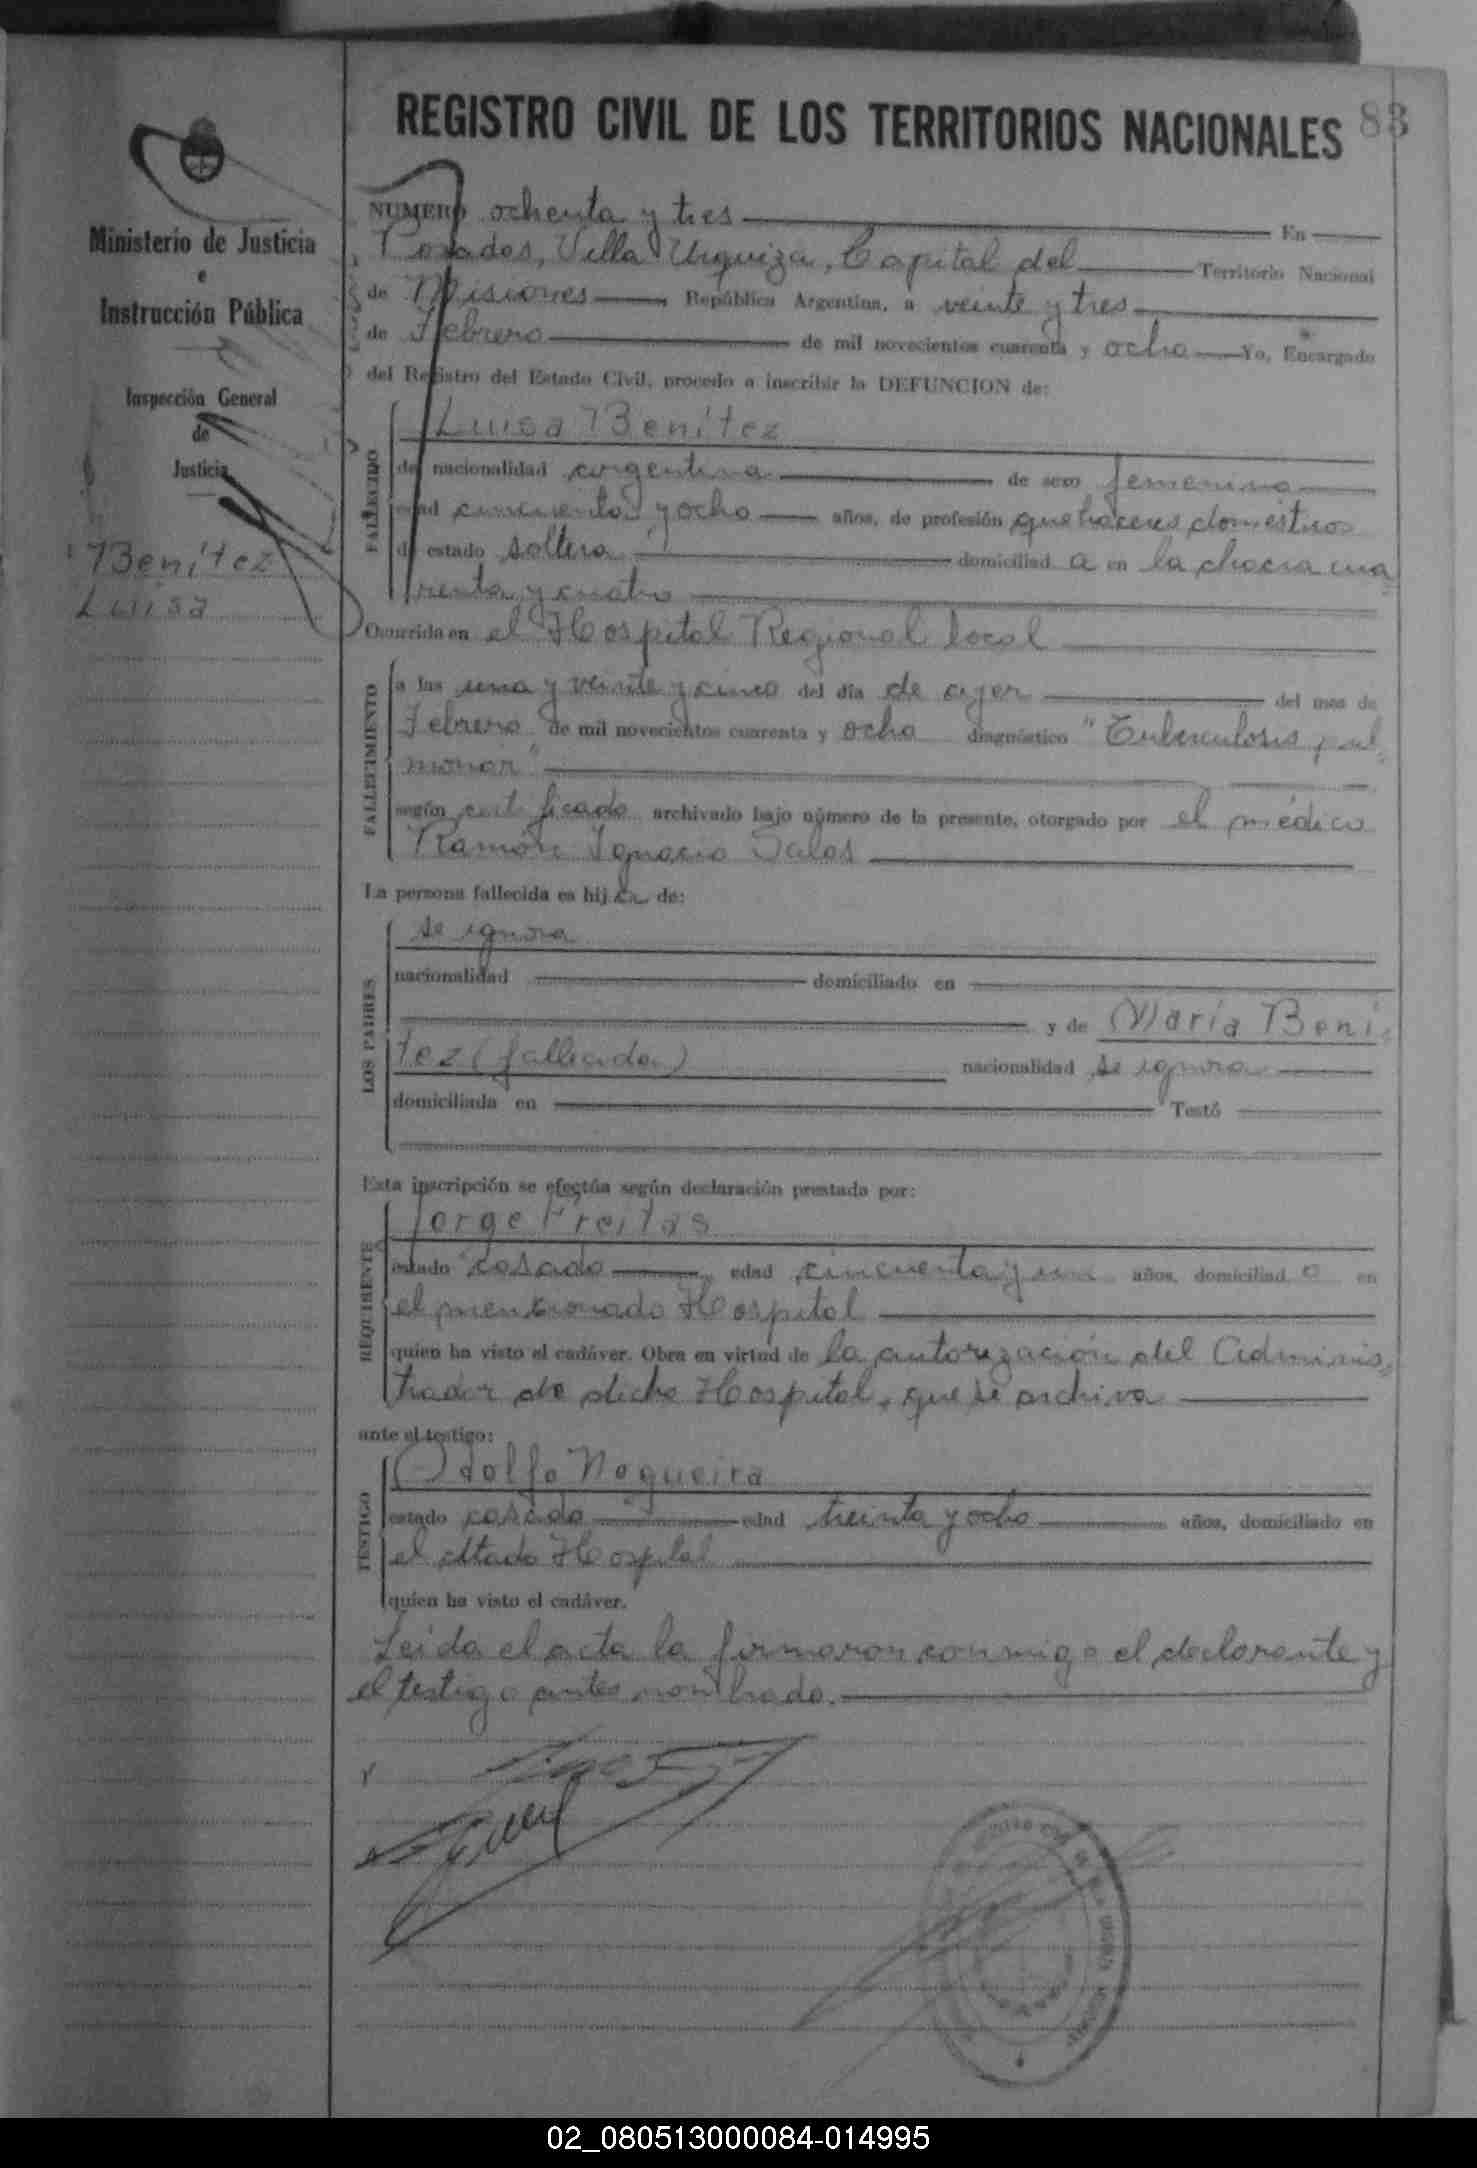 REGISTRO CIVIL DE LOS TERRITORIOS NACIONALES 83
Ministerio de Justicia
e
Instrucción Pública
Inspección General
de
Justicia
Benítez
Luisa
NUMERO ochenta y tres En
Posadas, Villa Urquiza, Capital del Territorio Nacional
de Misiones República Argentina, a veinte y tres
de Febrero de mil novecientos cuarenta y ocho Yo, Encargado
del Registro del Estado Civil, procedo a inscribir la DEFUNCION de:
FALLECIDO
Luisa Benítez
de nacionalidad argentina de sexo femenino
edad cincuenta y ocho años, de profesión quehaceres domésticos
de estado soltera domiciliad a en la chacra cua
renta y cuatro
Ocurrida en el Hospital Regional local
FALLECIMIENTO
a las una y veinte y cinco del día de ayer del mes de
Febrero de mil novecientos cuarenta y ocho diagnóstico "Tuberculosis pul
monar"
según certificado archivado bajo número de la presente, otorgado por el médico
Ramón Ignacio Salas
La persona fallecida es hij a de:
LOS PADRES
se ignora
nacionalidad domiciliado en
y de María Bení
tez (fallecida) nacionalidad se ignora
domiciliada en Testó
Esta inscripción se efectúa según declaración prestada por:
REQUIRENTE
Jorge Freitas
estado casado edad cincuenta y un años, domiciliad o en
el mencionado Hospital
quien ha visto el cadáver. Obra en virtud de la autorización del Adminis
trador de dicho Hospital, que se archiva
ante el testigo:
TESTIGO
Adolfo Nogueira
estado casado edad treinta y ocho años, domiciliado en
el citado Hospital
quien ha visto el cadáver.
Leída el acta la firmaron conmigo el declarante y
el testigo antes nombrado.
02_080513000084-014995